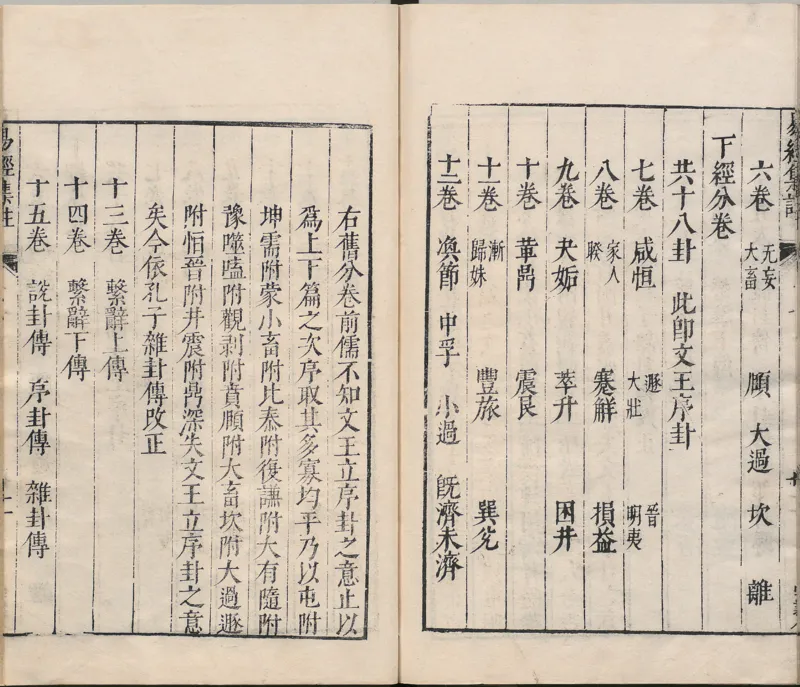 易經集註
六卷 无妄 大畜 頤 大過 坎 離
下經分卷
共十八卦 此卽文王序卦
七卷 咸恒 遯 大壯 晉 明夷
八卷 家人 睽 蹇解 損益
九卷 夬姤 萃升 困井
十卷 革鼎 震艮
十一卷 漸 歸妹 豐旅 巽兌
十二卷 渙節 中孚 小過 旣濟未濟
右舊分卷前儒不知文王立序卦之意止以
爲上下篇之次序取其多寡均平乃以屯附
坤需附蒙小畜附比泰附復謙附大有隨附
豫噬嗑附觀剥附賁頤附大畜坎附大過遯
附恒晉附井震附鼎深失文王立序卦之意
矣今依孔子雜卦傳改正
十三卷 繫辭上傳
十四卷 繫辭下傳
十五卷 說卦傳 序卦傳 雜卦傳
易經集註